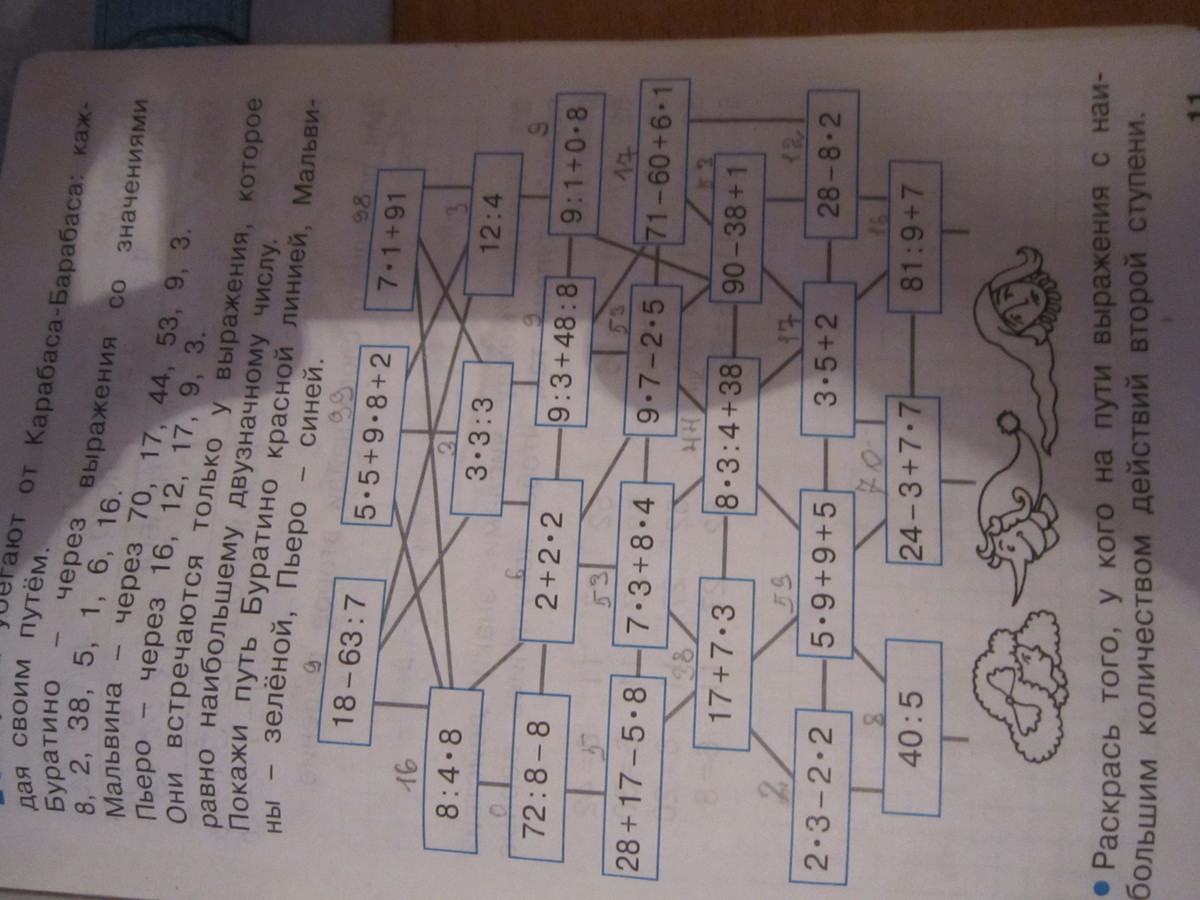 убегают от Карабаса-Барабаса: каж-
дая своим путём.
Буратино – через выражения со значениями
8, 2, 38, 5, 1, 6, 16.
Мальвина – через 70, 17, 44, 53, 9, 3.
Пьеро – через 16, 12, 17, 9, 3.
Они встречаются только у выражения, которое
равно наибольшему двузначному числу.
Покажи путь Буратино красной линией, Мальви-
ны – зелёной, Пьеро – синей.
9 99 98
18 – 63 : 7 5 • 5 + 9 • 8 + 2 7 • 1 + 91
16 3 3
8 : 4 • 8 3 • 3 : 3 12 : 4
9 9
72 : 8 – 8 2 + 2 • 2 9 : 3 + 48 : 8 9 : 1 + 0 • 8
53 53 17
28 + 17 – 5 • 8 7 • 3 + 8 • 4 9 • 7 – 2 • 5 71 – 60 + 6 • 1
38 44 53
17 + 7 • 3 8 • 3 : 4 + 38 90 – 38 + 1
2 59 17 12
2 • 3 – 2 • 2 5 • 9 + 9 + 5 3 • 5 + 2 28 – 8 • 2
8 70 16
40 : 5 24 – 3 + 7 • 7 81 : 9 + 7
• Раскрась того, у кого на пути выражения с наи-
большим количеством действий второй ступени.
11